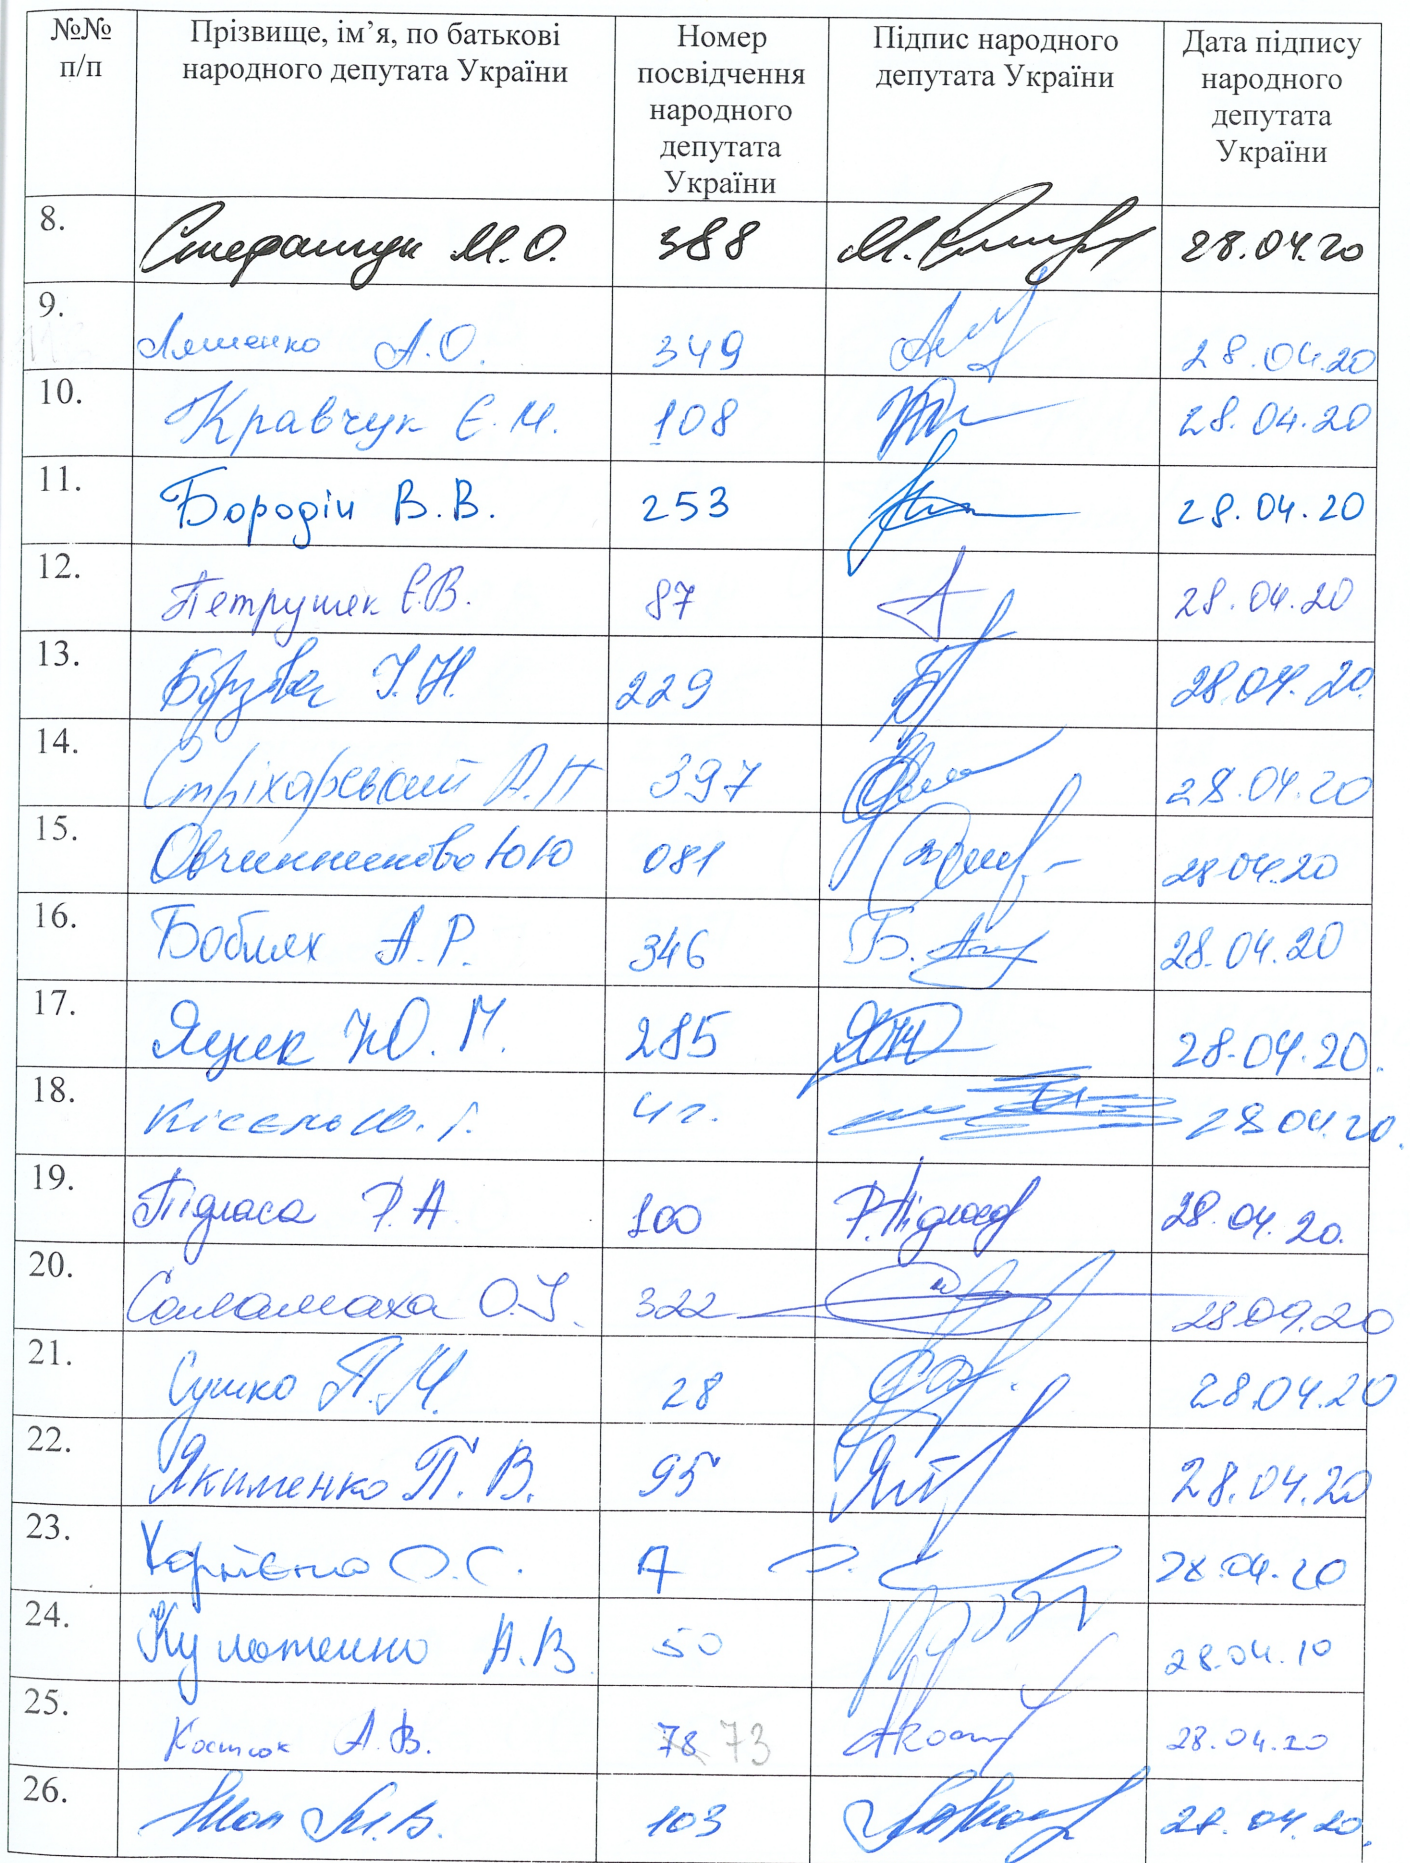 №№ п/п Прізвище, ім’я, по батькові народного депутата України Номер посвідчення народного депутата України Підпис народного депутата України Дата підпису народного депутата України
8. Стефанчук М.О. 388 28.04.20
9. Ляшенко А.О. 349 28.04.20
10. Кравчук Є.М. 108 28.04.20
11. Бородін В.В. 253 28.04.20
12. Петруняк Є.В. 87 28.04.20
13. І.Н. 229 28.04.20
14. Стріхарський А.П 397 28.04.20
15. Овчинникова Ю Ю 081 28.04.20
16. Боблях А.Р. 346 Б. 28.04.20
17. Яцик Ю.Г. 285 28.04.20.
18. Кісєль Ю.Г. 28.04.20.
19. Підласа Р.А 100 Р.Підласа 28.04.20.
20. Саламаха О.І. 322 28.04.20
21. Сушко П.М. 28 28.04.20
22. Якименко П.В. 95 28.04.20
23. О.С. 28.04.20
24. А.В 50 28.04.10
25. Костюк А.В. 78 73 28.04.20
26. 103 28.04.20.